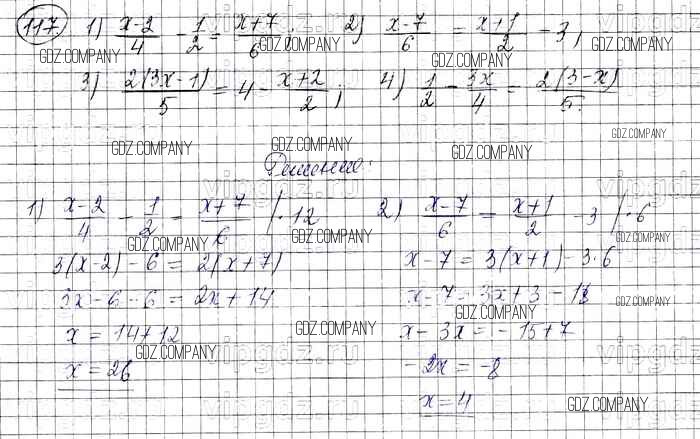 117. 1) (x-2)/4 - 1/2 = (x+7)/6; 2) (x-7)/6 = (x+1)/2 - 3;
GDZ.COMPANY GDZ.COMPANY GDZ.COMPANY
3) 2(3x-1)/5 = 4 - (x+2)/2; 4) 1/2 - 3x/4 = 2(3-x)/5.
GDZ.COMPANY GDZ.COMPANY GDZ.COMPANY GDZ.COMPANY
vipgdz.ru
Решение:
1) (x-2)/4 - 1/2 = (x+7)/6 /·12 2) (x-7)/6 = (x+1)/2 - 3 /·6
GDZ.COMPANY GDZ.COMPANY GDZ.COMPANY
3(x-2) - 6 = 2(x+7) x-7 = 3(x+1) - 3·6
3x - 6 - 6 = 2x + 14 x-7 = 3x + 3 - 18
GDZ.COMPANY GDZ.COMPANY GDZ.COMPANY
x = 14+12 x - 3x = -15+7
GDZ.COMPANY
vipgdz.ru
x = 26 -2x = -8
x = 4
GDZ.COMPANY